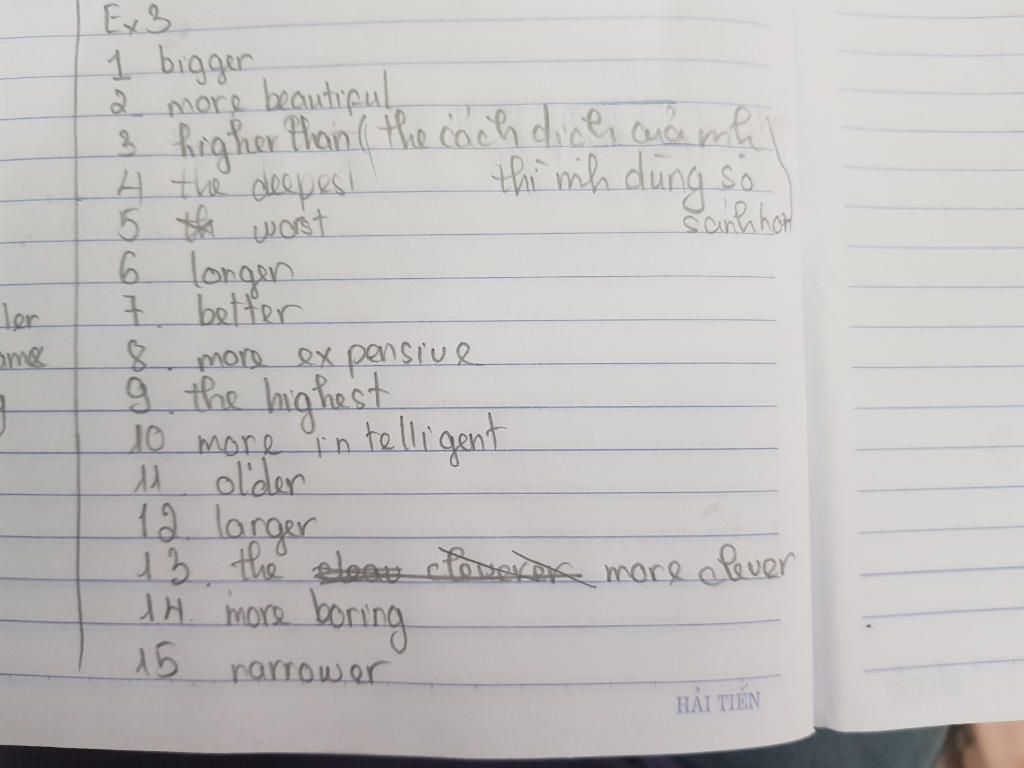 Ex3
1 bigger
2 more beautiful
3 higher than ( the cách dịch của mh
4 the deepest thì mh dùng so
5 worst sánh hơn )
6 longer
ler 7. better
ome 8. more expensive
g 9. the highest
10 more intelligent
11. older
12. larger
13. the more clever
14. more boring
15 narrower
HẢI TIẾN